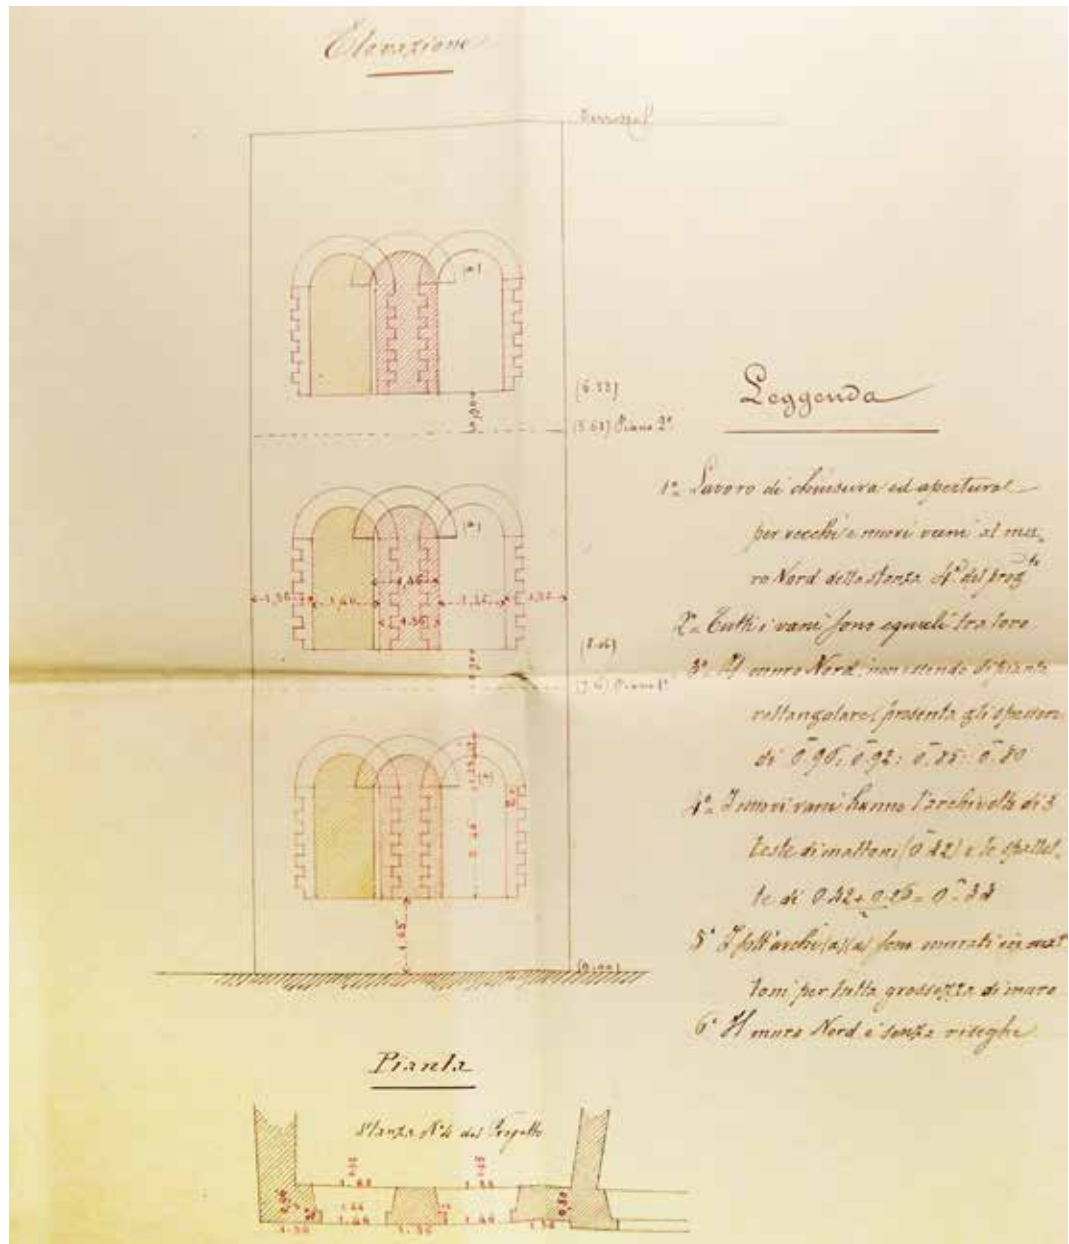 Elevazione
(a)
(6.53)
0,900
(5.63) Piano 2º
(a)
1,46
1,36
1,46
1,46
1,36
1,36
0,900
Piano 1º
(a)
1.65
(0.00)
Leggenda
1º Lavoro di chiusura ed apertura
per vecchi e nuovi vani al mu-
ro Nord della stanza 4ª del prog.to
2º Tutti i vani sono eguali tra loro
3º Il muro Nord, non essendo di pianta
rettangolare, presenta gli spessori
di 0.96: 0.92: 0.85: 0.80
4º I nuovi vani hanno l'archivolto di 3
teste di mattoni (0.42) e le spallet-
te di
5º I sott'archi (a) (a) sono murati in mat-
toni per tutta grossezza di muro
6º Il muro Nord è senza riseghe
Pianta
Stanza Nº 4 del Progetto
1.46
1.46
0,80
1.36
1.36